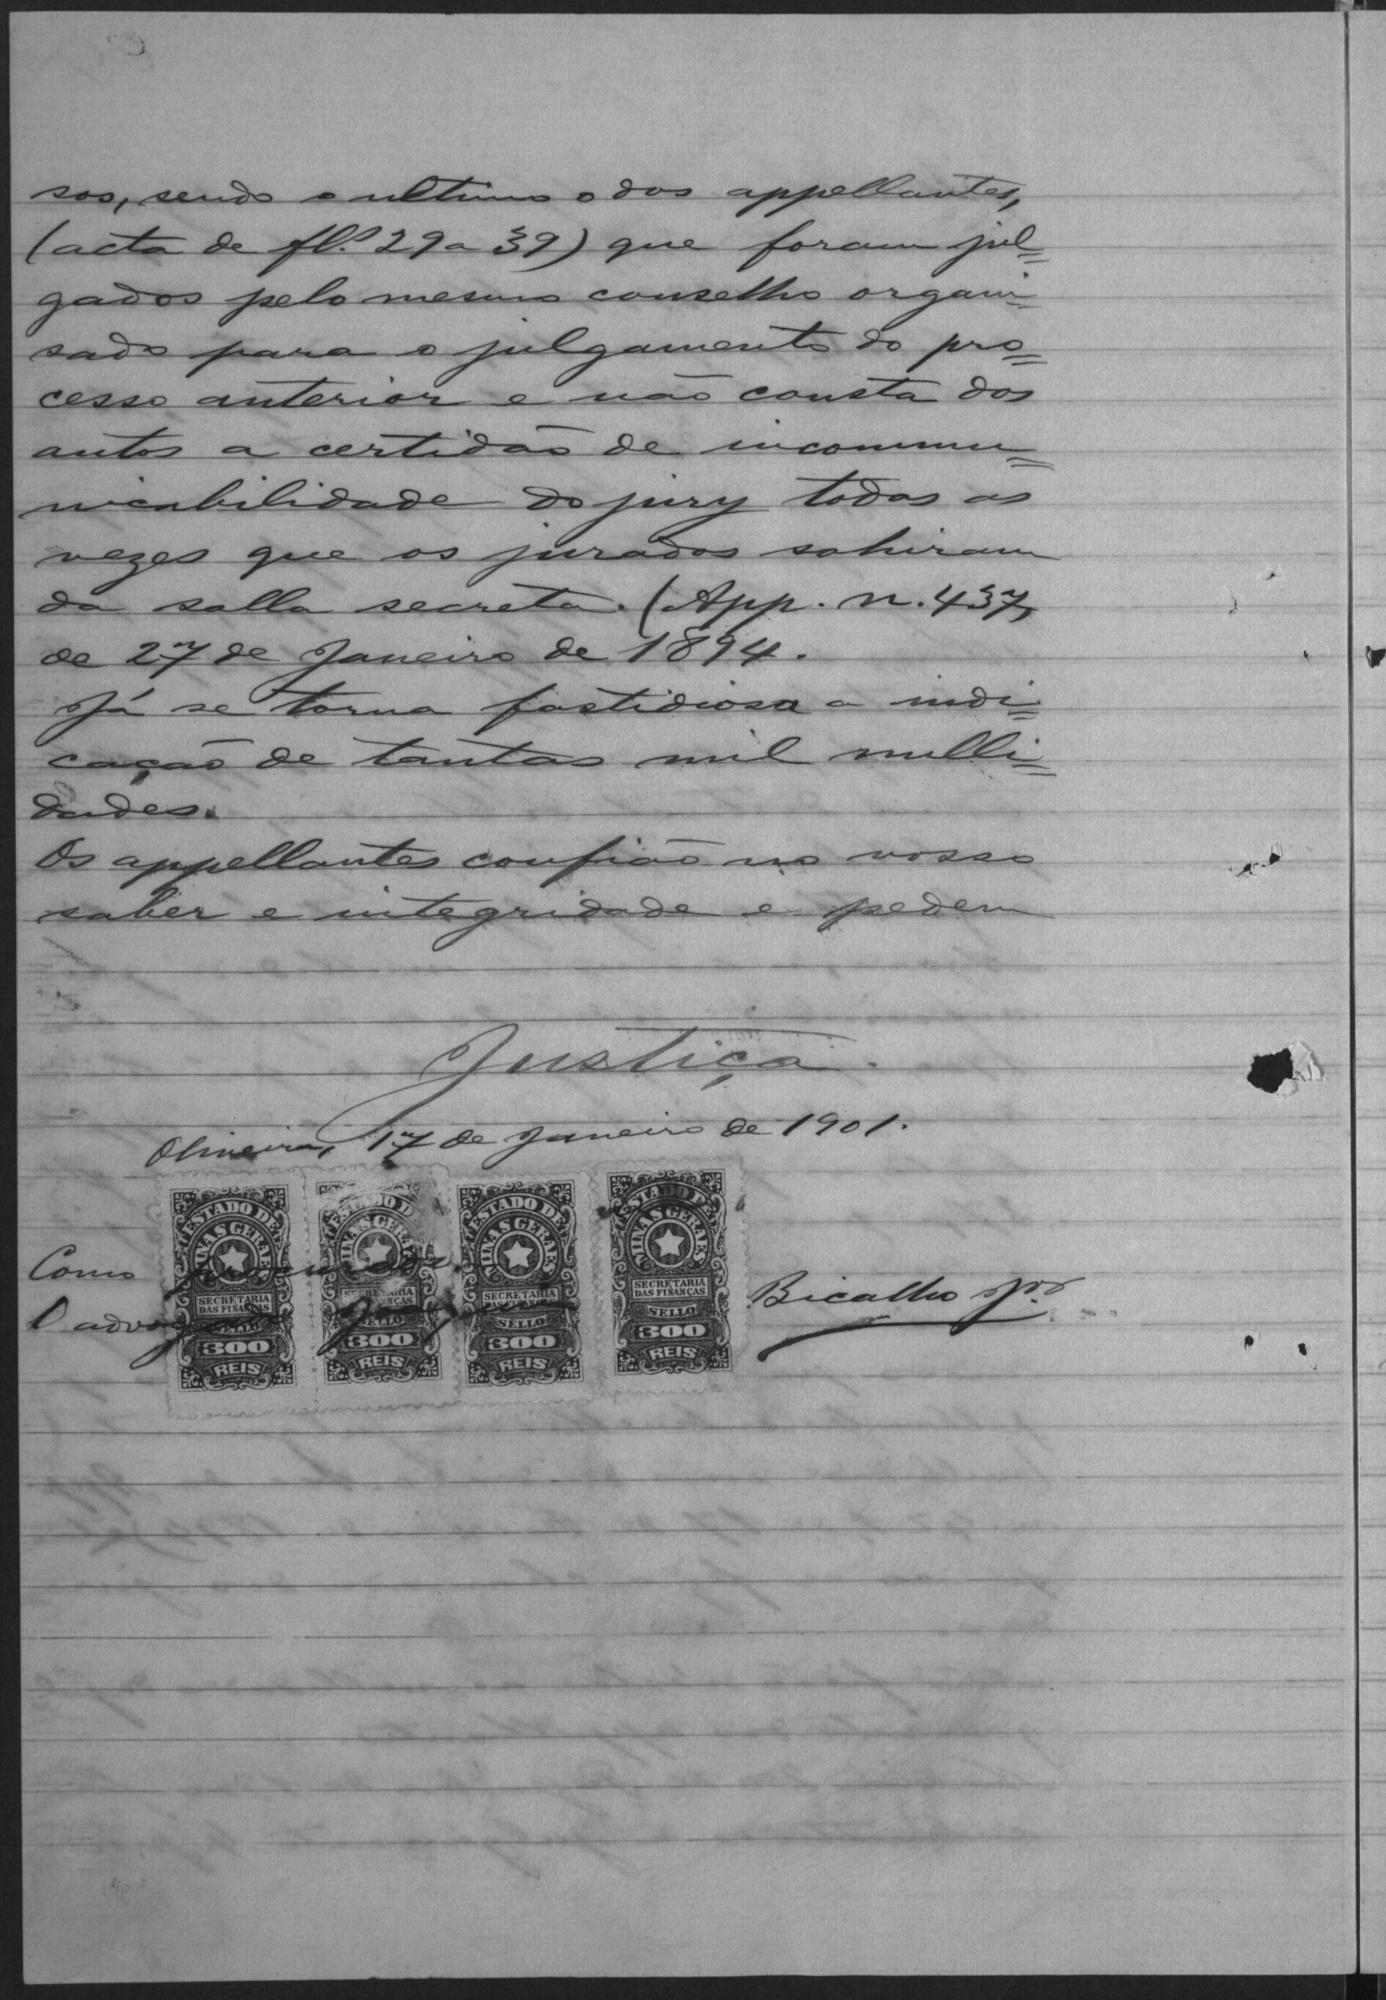 sos, sendo o ultimo o dos appellantes,
(acta de fl.s 29 a 39) que foram jul=
gados pelo mesmo conselho organi=
sado para o julgamento do pro=
cesso anterior e não consta dos
autos a certidão de incommu=
nicabilidade do jury todas as
vezes que os jurados sahiram
da salla secreta. (App. n. 437,
de 27 de Janeiro de 1894.
Já se torna fastidiosa a indi=
cação de tantas mil nulli=
dades.
Os appellantes confião no vosso
saber e integridade e pedem
Justiça.
Oliveira, 17 de Janeiro de 1901.
ESTADO DE MINAS GERAES SECRETARIA DAS FINANÇAS SELLO 300 REIS
ESTADO DE MINAS GERAES SECRETARIA DAS FINANÇAS SELLO 300 REIS
ESTADO DE MINAS GERAES SECRETARIA DAS FINANÇAS SELLO 300 REIS
ESTADO DE MINAS GERAES SECRETARIA DAS FINANÇAS SELLO 300 REIS
Como procurador.
O advogado Bicalho Jor